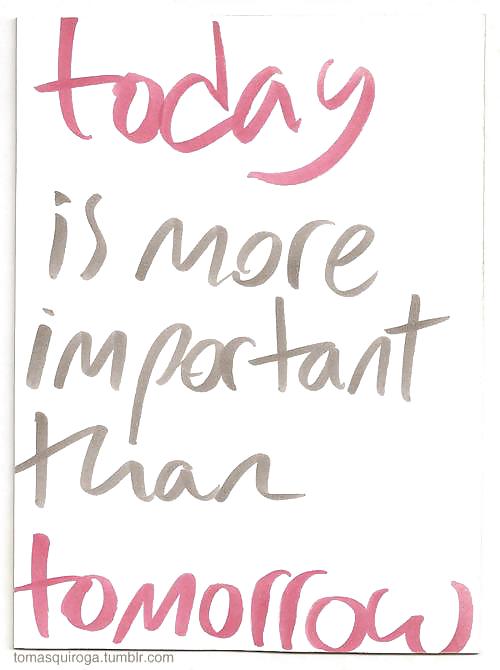 today
is more
important
than
tomorrow
tomasquiroga.tumblr.com